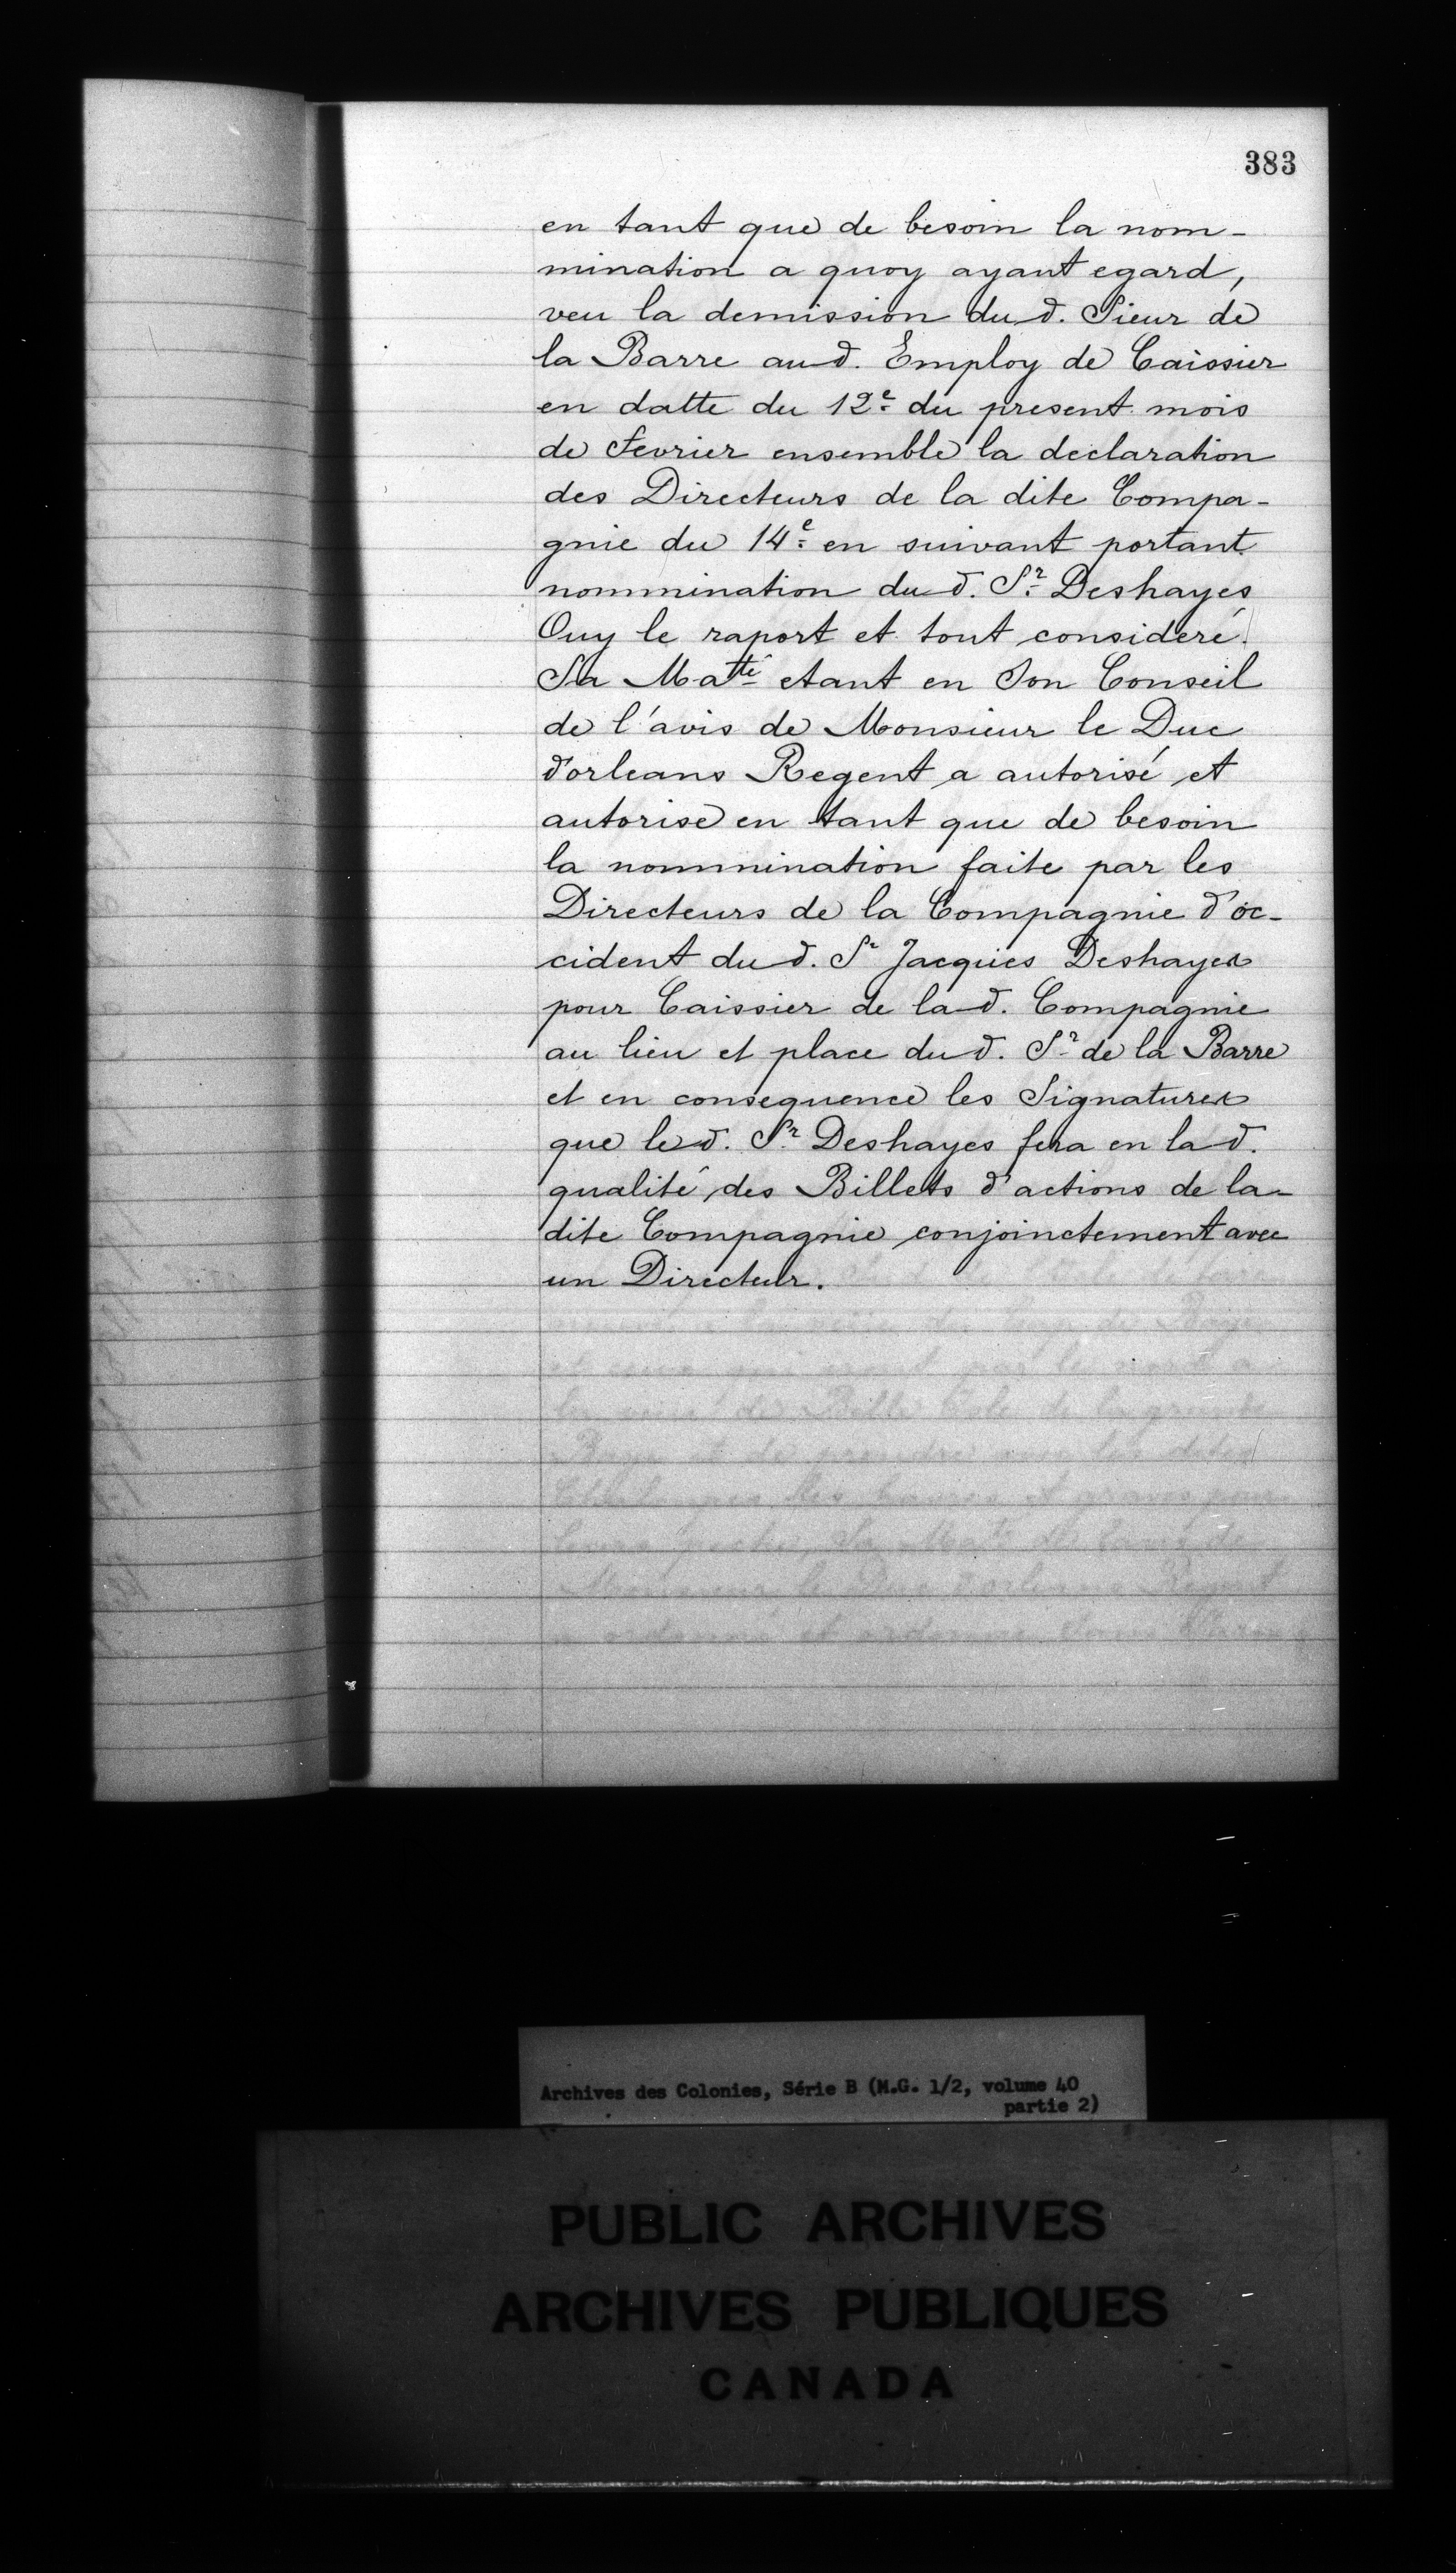 383
en tant que de besoin la nom-
mination a quoy ayant egard,
veu la demission du d. Sieur de
la Barre au d. Employ de Caissier
en datte du 12e du present mois
de fevrier ensemble la declaration
des Directeurs de la dite Compa-
gnie du 14e en suivant portant
nommination du d. Sr Deshayes
Ouy le raport et tout consideré.
Sa Matté etant en Son Conseil
de l'avis de Monsieur le Duc
d'orleans Regent a autorisé et
autorise en tant que de besoin
la nommination faite par les
Directeurs de la Compagnie d'oc-
cident du d. Sr Jacques Deshayes
pour Caissier de la d. Compagnie
au lieu et place du d. Sr de la Barre
et en consequence les Signatures
que le d. Sr Deshayes fera en la d.
qualité des Billets d'actions de la-
dite Compagnie conjoinctement avec
un Directeur.
Archives des Colonies, Série B (M.G. 1/2, volume 40
partie 2)
PUBLIC ARCHIVES
ARCHIVES PUBLIQUES
CANADA